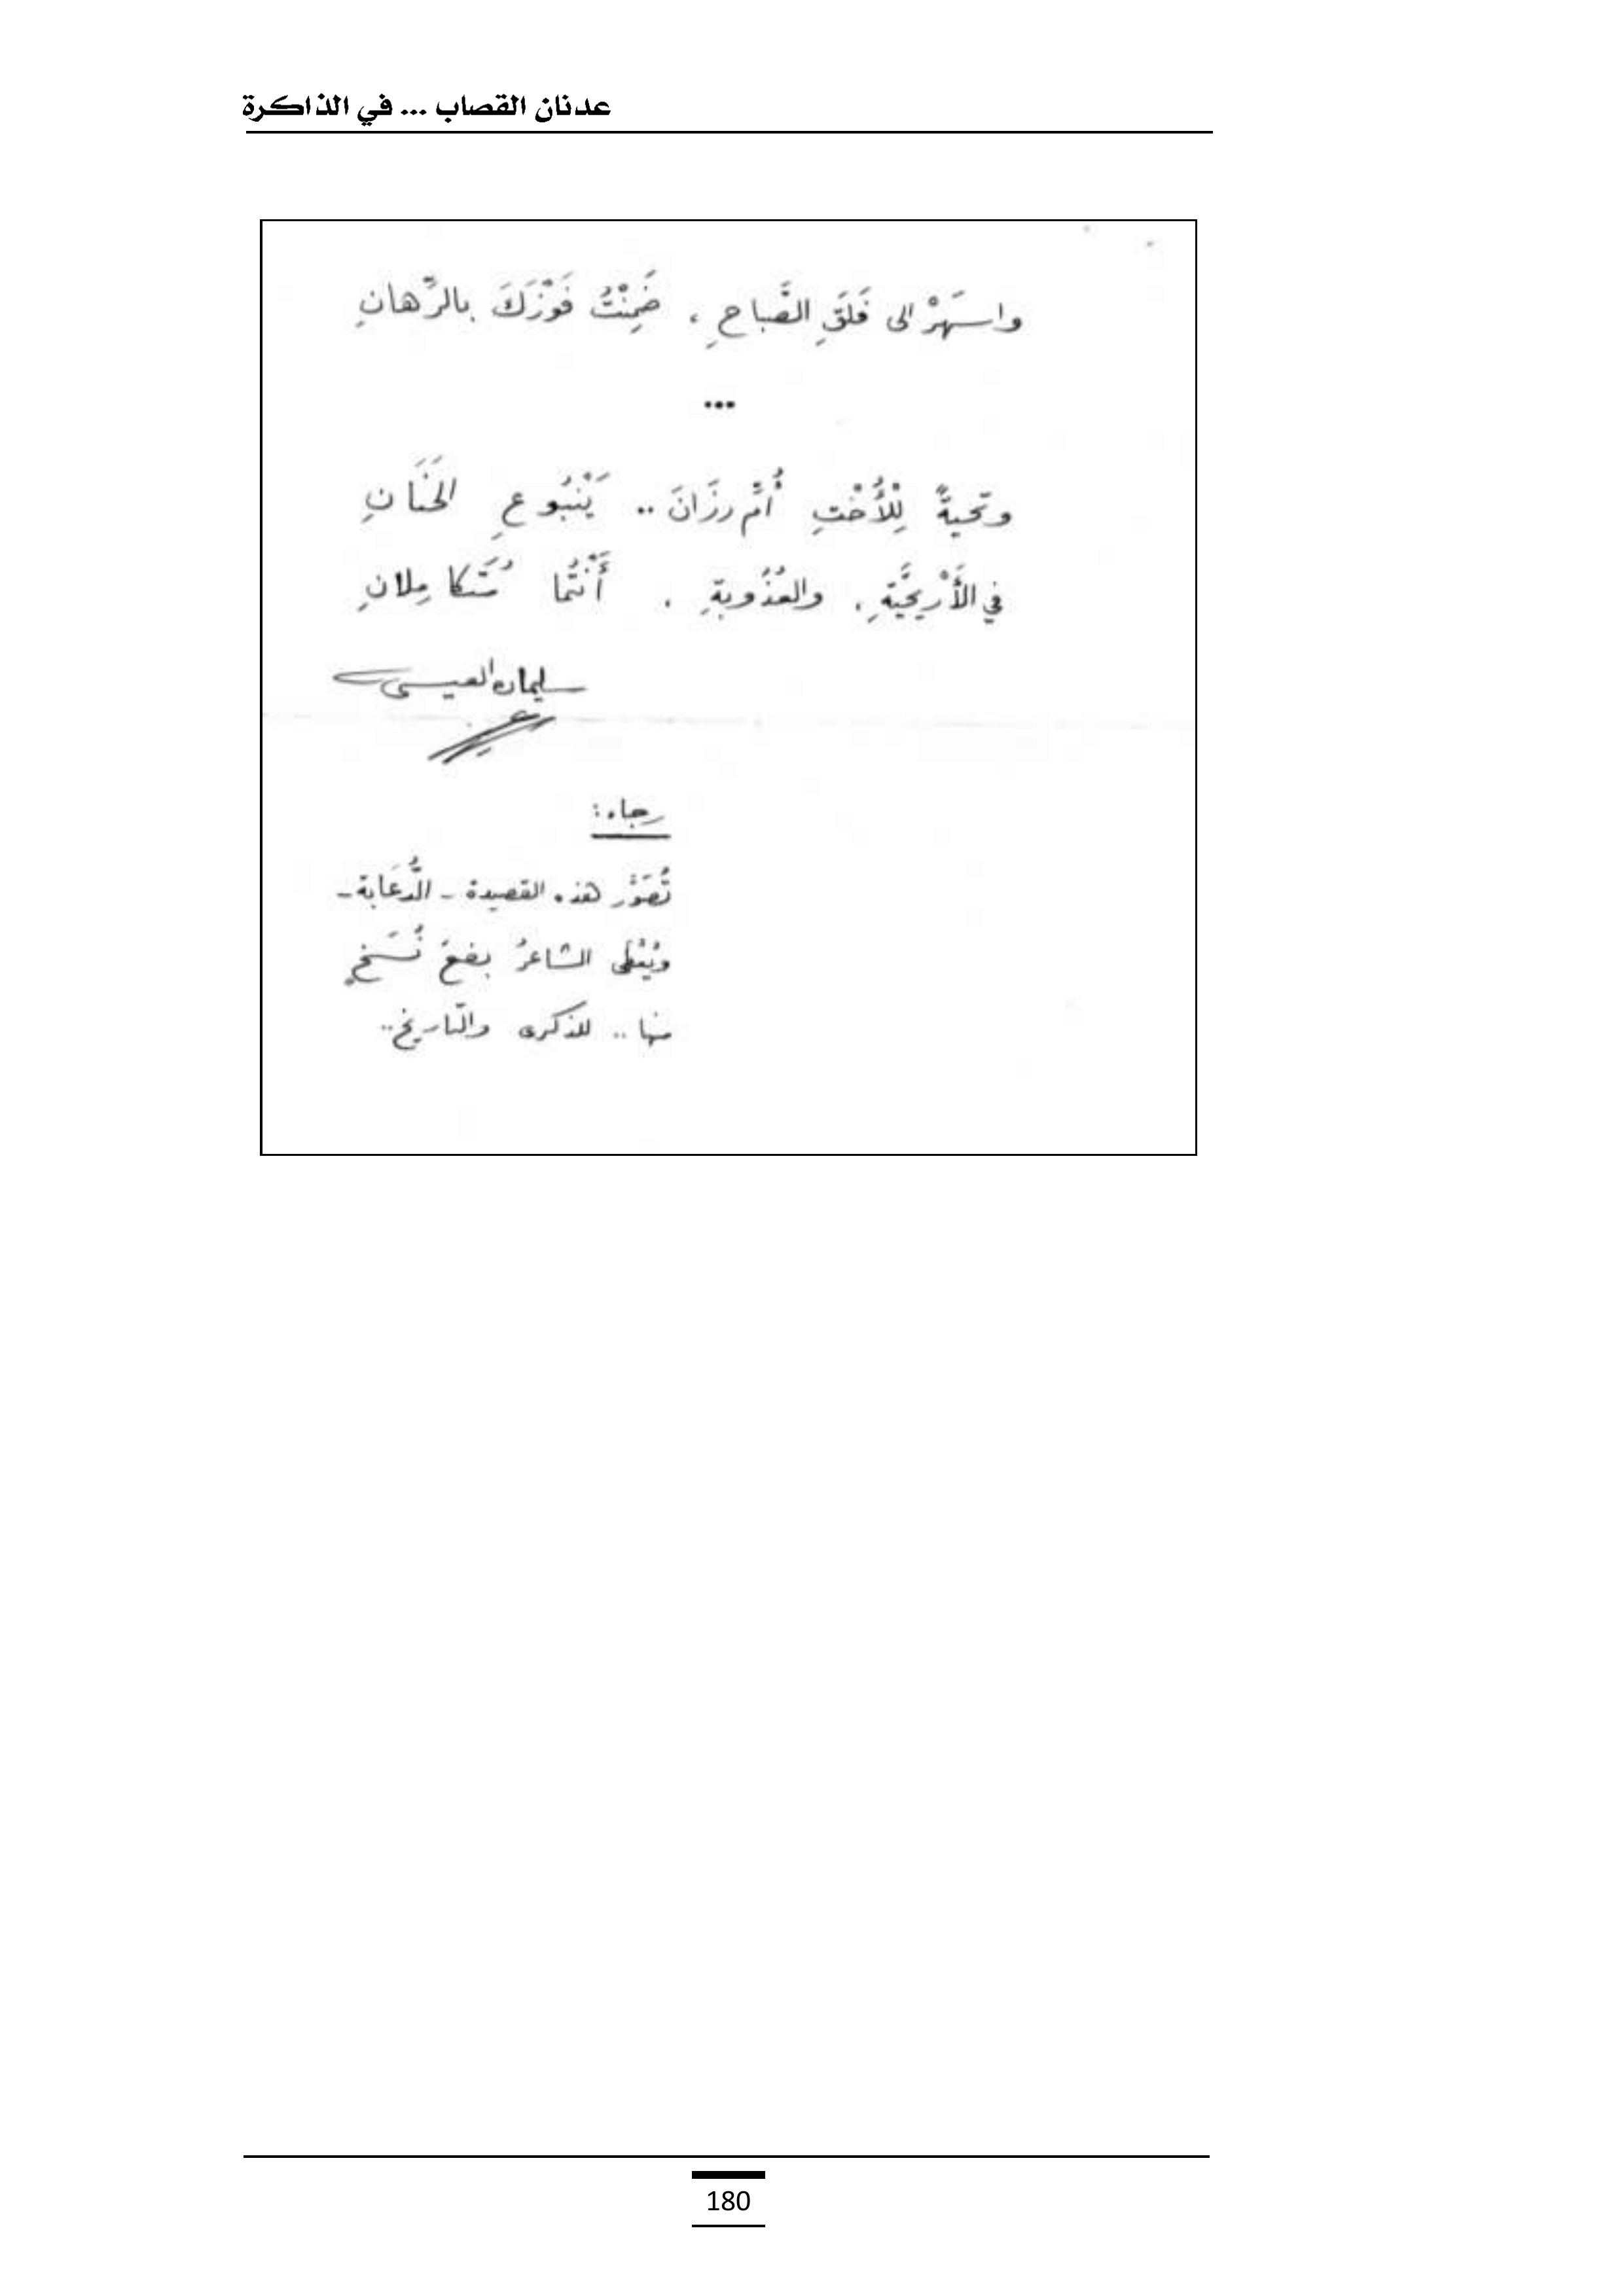 عدنان القصاب ... في الذاكرة
واسهَرْ الى فَلَقِ الصَّباحِ ، ضَمِنْتُ فَوْزَكَ بالرِّهانِ
...
وتحيةً لِلْأُخْتِ أُمِّ رزَانَ .. يَنْبُوعِ الحَنَانِ
في الأَرْيحيَّةِ ، والعُذُوبةِ ، أَنْتُما مُتَكامِلانِ
سليمان العيسى
رجاء :
تُصَوَّر هذه القصيدة - الدُّعَابة -
ويُعْطى الشاعرُ بضعَ نُسَخٍ
منها .. للذكرى والتاريخ ..
180